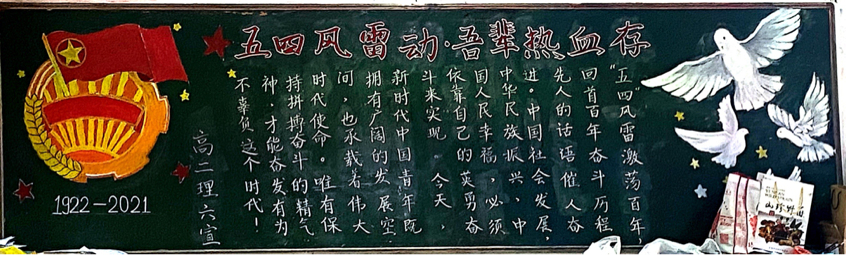 五四风雷动·吾辈热血存
“五四”风雷激荡百年，
回首百年奋斗历程，
先人的话语催人奋
进。中国社会发展，
中华民族振兴，中
国人民幸福，必须
依靠自己的英勇奋
斗来实现。今天，
新时代中国青年既
拥有广阔的发展空
间，也承载着伟大
时代使命。唯有保
持拼搏奋斗的精气
神，才能奋发有为
不辜负这个时代！
高二理六宣
1922—2021